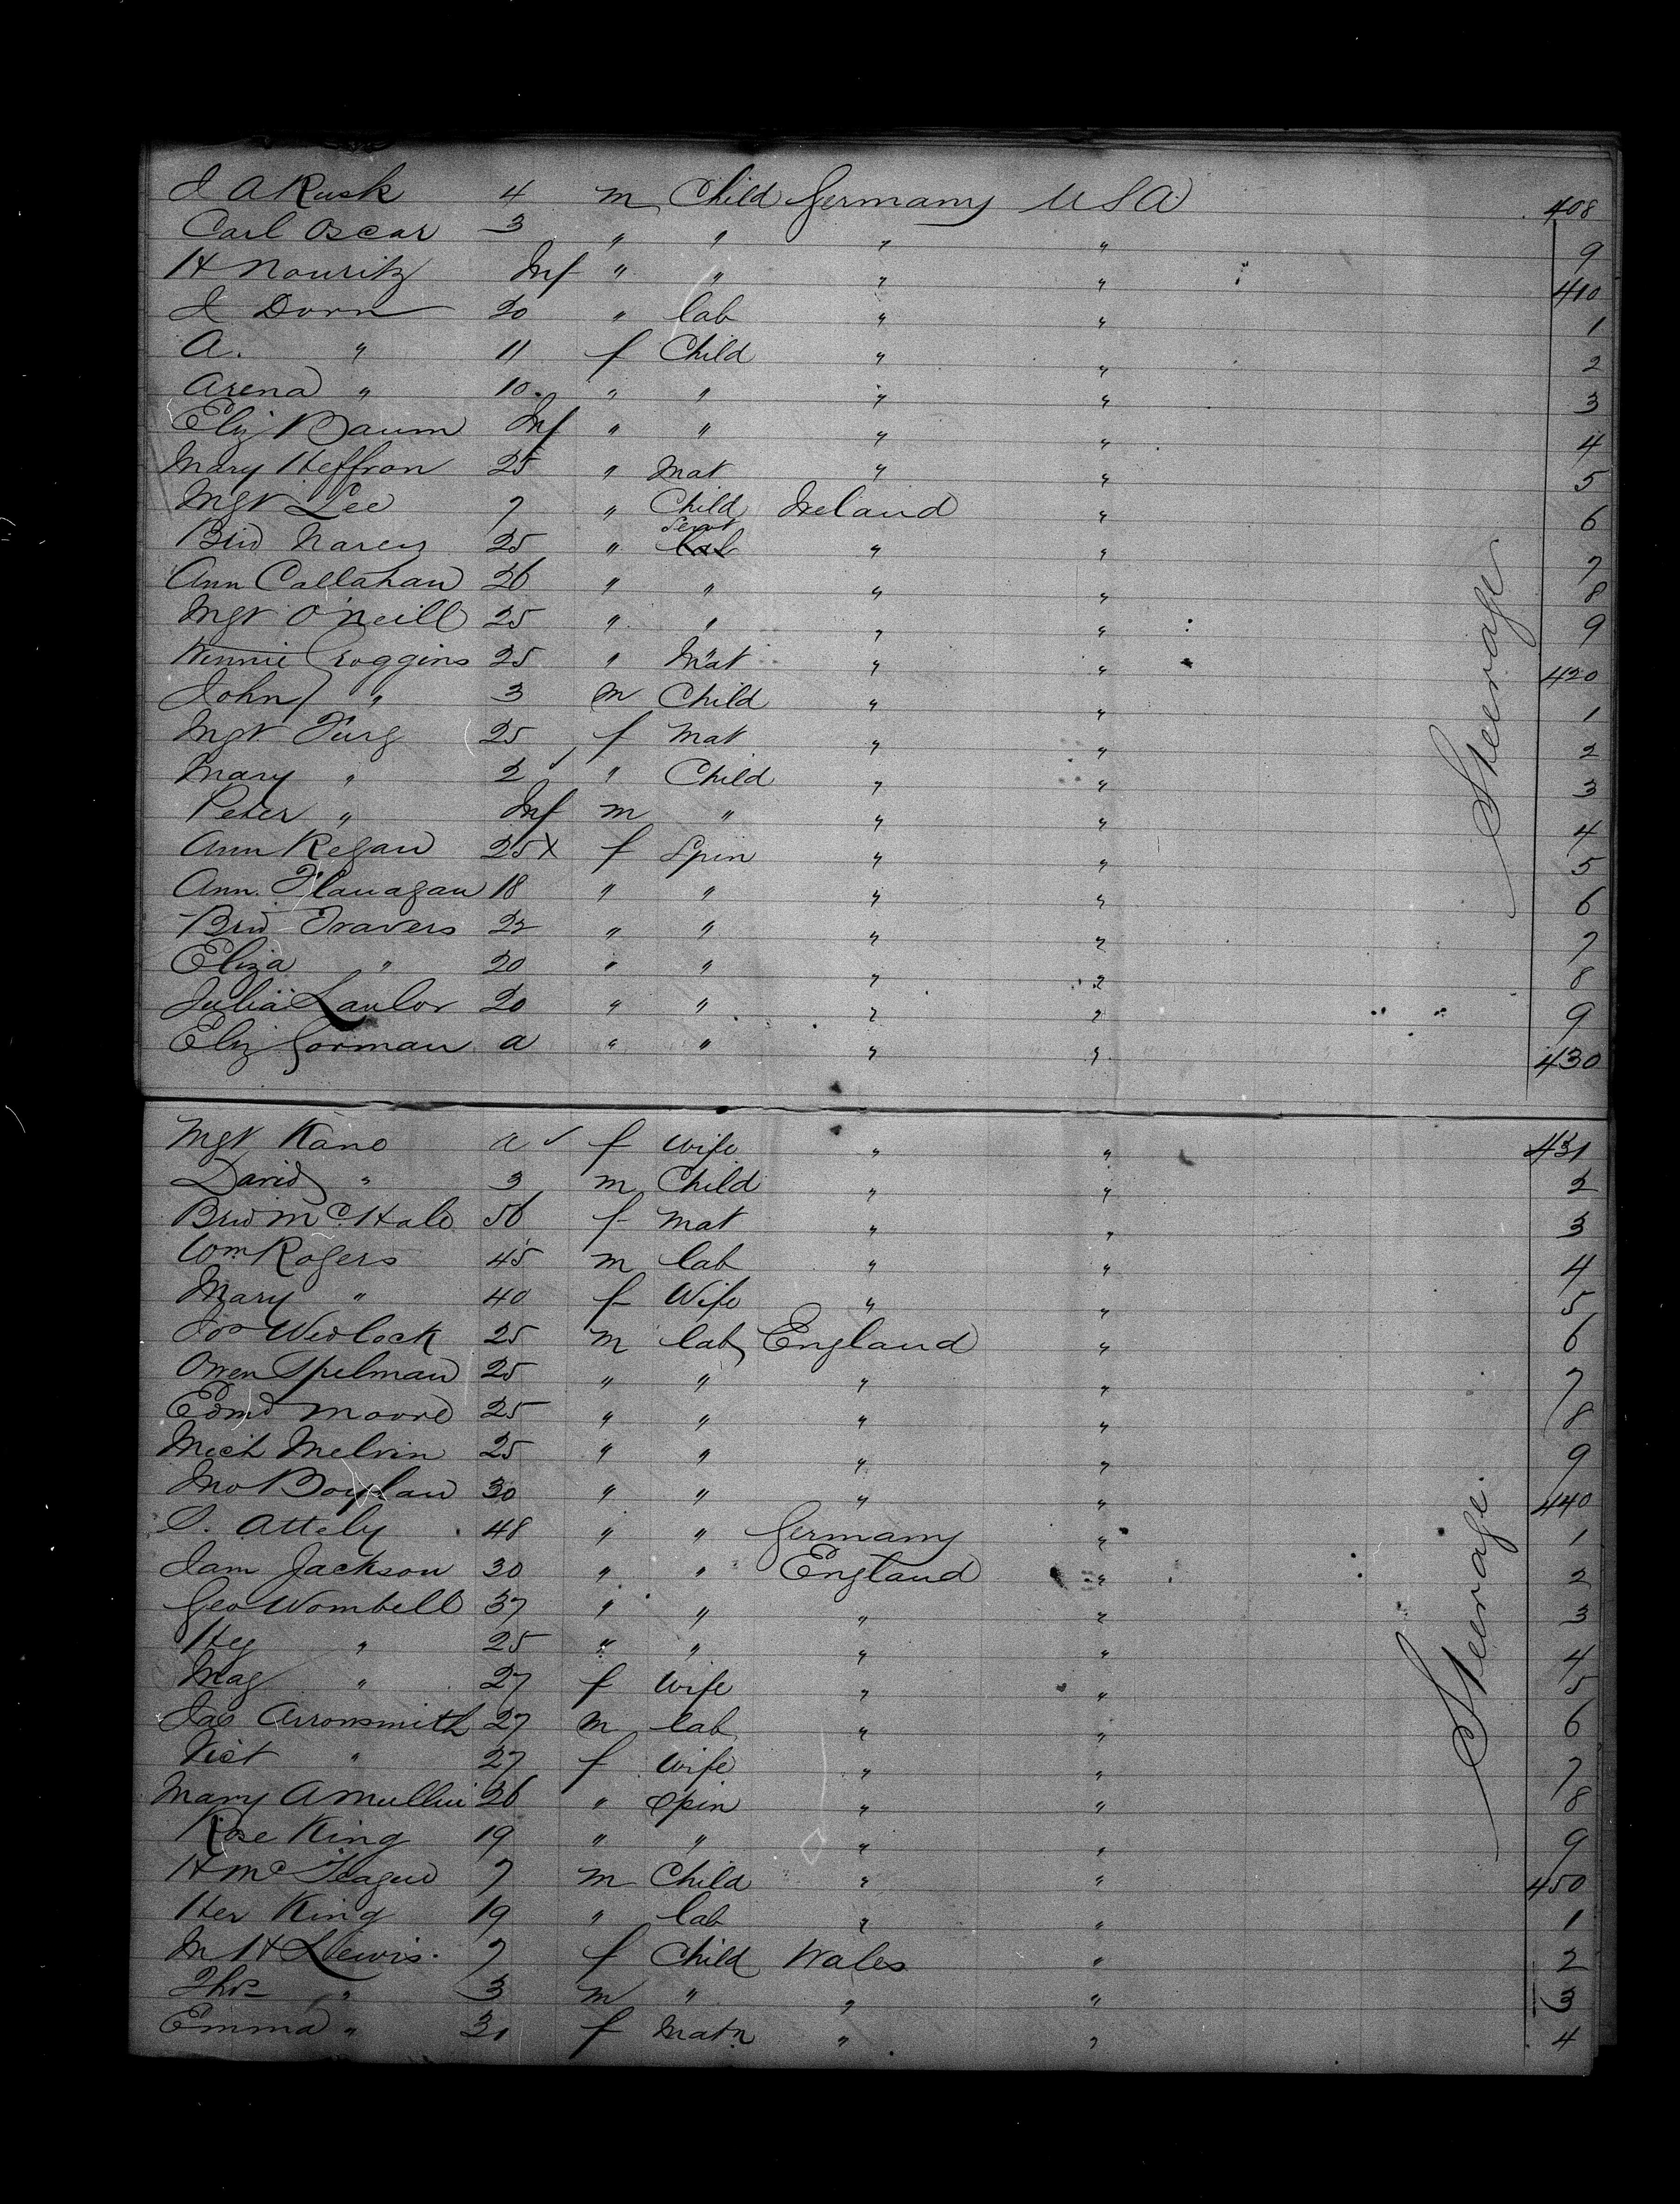 J A Rusk 4 m Child Germany USA 408
Carl Oscar 3 " " " " 9
H Nouritz Inf " " " " 410
J Dorn 20 " lab " " 1
A. " 11 f Child " " 2
Arena " 10 " " " " 3
Eliz Baum Inf " " " " 4
Mary Heffron 25 " Mat " " 5
Mgt Lee 7 " Child Ireland " 6
Brid 25 " Servt " " 7
Ann Callahan 26 " " " " 8
Mgt O'Neill 25 " " " " 9
Winnie Croggins 25 " Mat " " 420
John " 3 m Child " " 1
Mgt Furg 25 f Mat " " 2
Mary " 2 " Child " " 3
Peter " Inf m " " " 4
Ann Regan 25 X f Spin " " 5
Ann Flanagan 18 " " " " 6
Brid Travers 22 " " " " 7
Eliza " 20 " " " " 8
Julia Lawlor 20 " " " " 9
Eliz Gorman a " " " " 430
Steerage
Mgt Kane a ✓ f Wife " " 431
David " 3 m Child " " 2
Brid McHale 56 f Mat " " 3
Wm Rogers 45 m lab " " 4
Mary " 40 f Wife " " 5
Jos Wedlock 25 m lab England " 6
Owen Spelman 25 " " " " 7
Edmd Moore 25 " " " " 8
Mich Melvin 25 " " " " 9
Jno Boylan 30 " " " " 440
S. Attely 48 " " Germany " 1
Sam Jackson 30 " " England " 2
Geo Wombell 37 " " " " 3
Hy " 25 " " " " 4
Mag " 27 f Wife " " 5
Jas Arronsmith 27 m lab " " 6
Vict " 27 f Wife " " 7
Mary A Mullin 26 " Spin " " 8
Rose King 19 " " " " 9
H McTeague 7 m Child " " 450
Her King 19 " lab " " 1
M H Lewis 7 f Child Wales " 2
Thos " 3 m " " " 3
Emma " 31 f Matn " " 4
Steerage